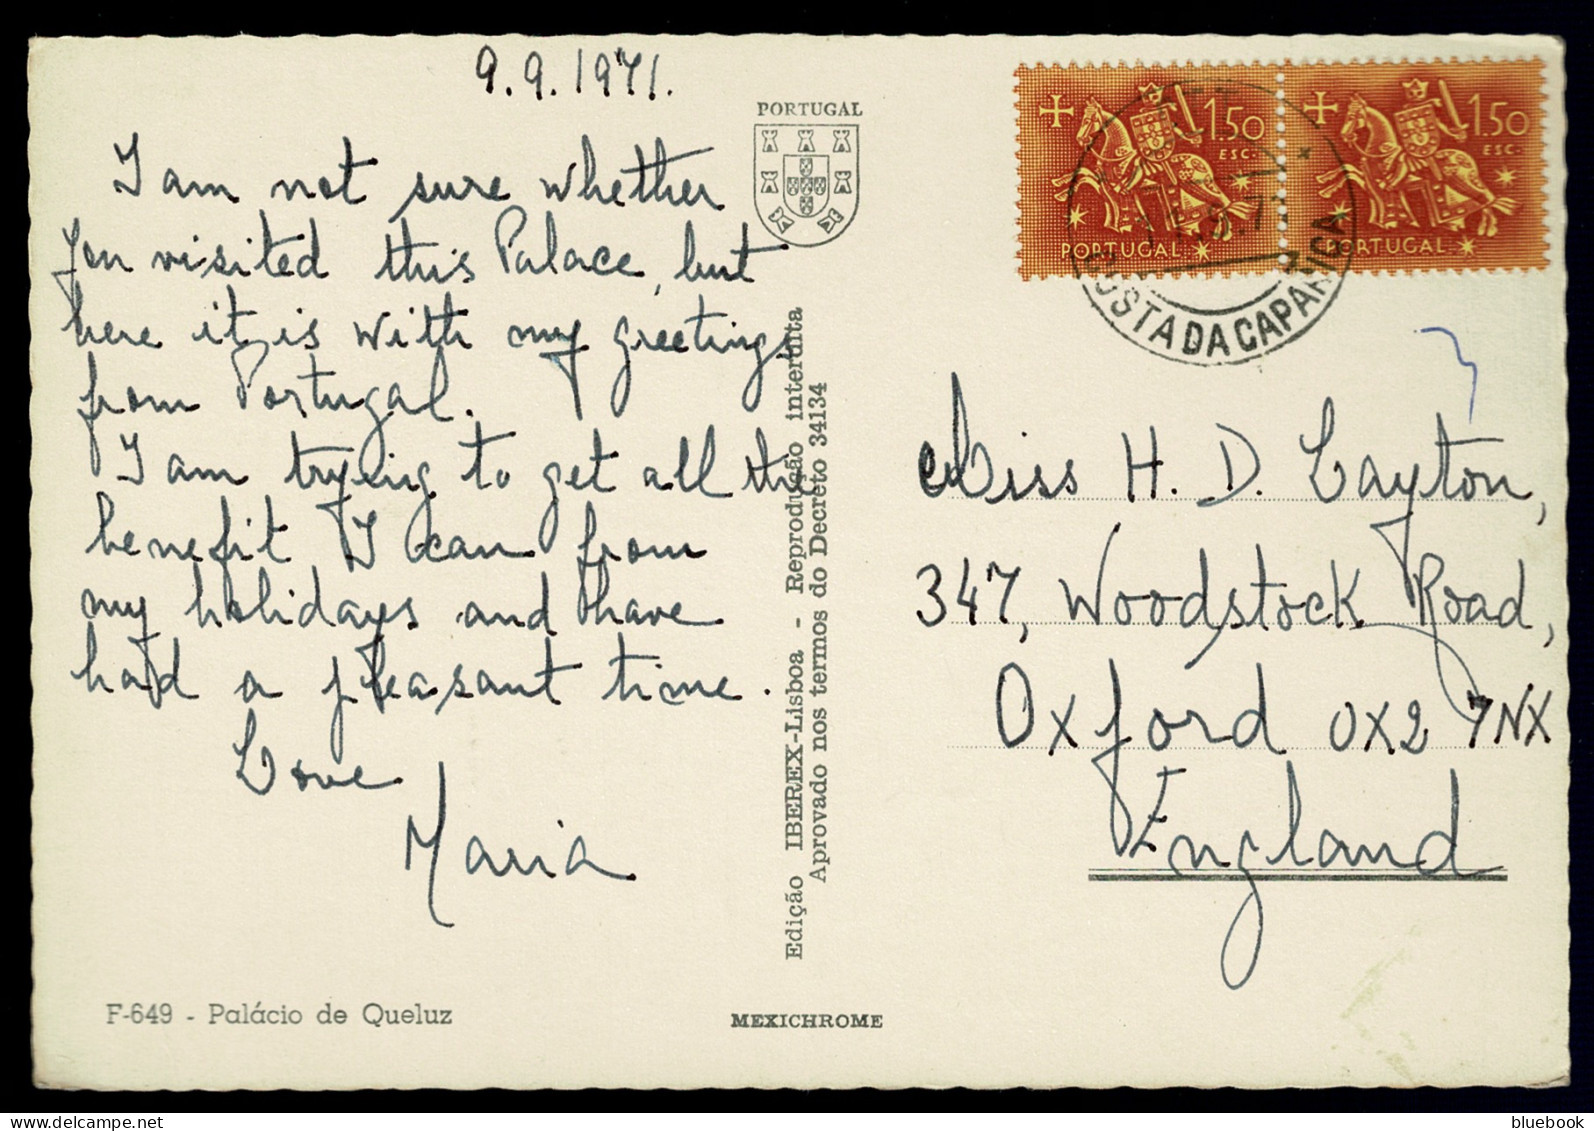 9.9.1971.
I am not sure whether
you visited this Palace, but
here it is with my greetings
from Portugal.
I am trying to get all the
benefit I can from
my holidays and have
had a pleasant time.
Love
Maria
F-649 - Palácio de Queluz
PORTUGAL
Edição IBEREX-Lisboa - Reprodução interdita
Aprovado nos termos do Decreto 34134
MEXICHROME
1$50
ESC.
PORTUGAL
1$50
ESC.
PORTUGAL
COSTA DA CAPARICA
Miss H. D. Layton,
347, Woodstock Road,
Oxford OX2 7NX
England
bluebook